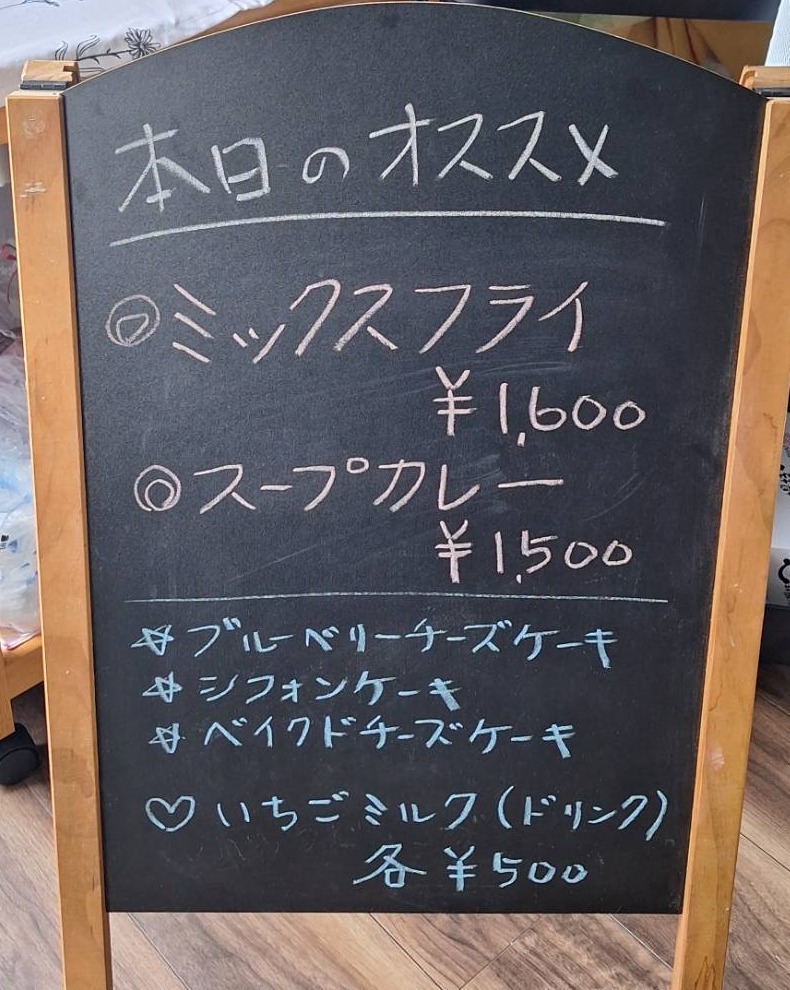 本日のオススメ
◎ミックスフライ
¥1,600
◎スープカレー
¥1,500
☆ブルーベリーチーズケーキ
☆シフォンケーキ
☆ベイクドチーズケーキ
♡いちごミルク(ドリンク)
各¥500